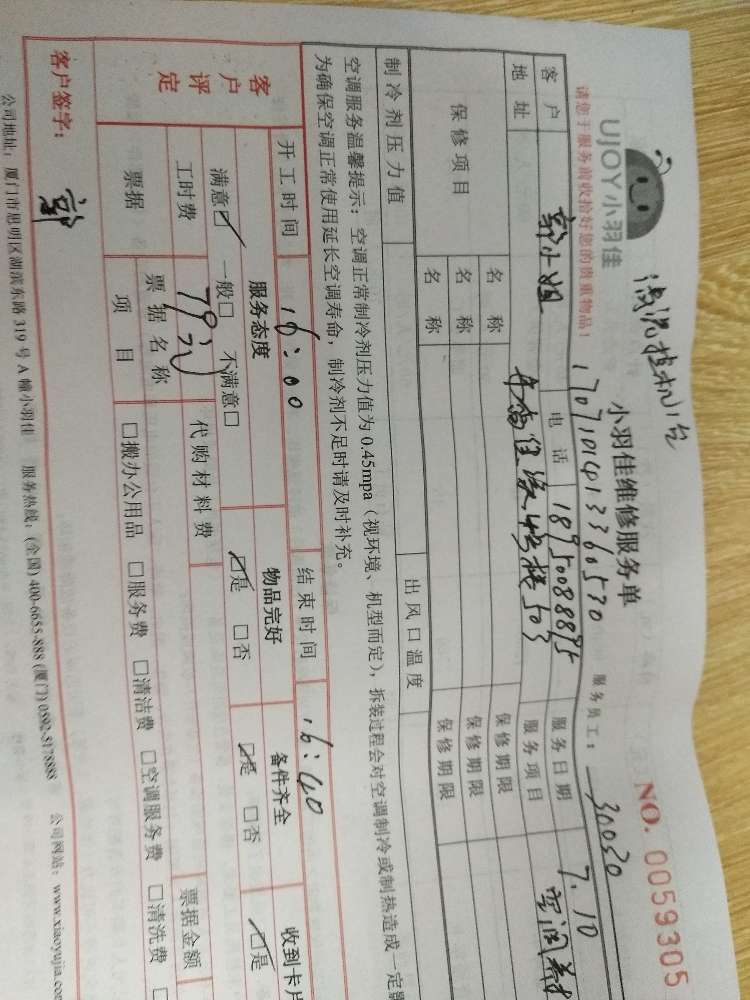 UJOY小羽佳
高温挂机1台
小羽佳维修服务单
NO. 0059305
请您于服务前收拾好您的贵重物品！
17071014133605 30
服务员工：30030
客户 郭小姐 电话 18950088895 服务日期 7.10
地址 4号楼503 服务项目 空调
保修项目 名称 保修期限
名称 保修期限
名称 保修期限
制冷剂压力值 出风口温度
空调服务温馨提示：空调正常制冷剂压力值为0.45mpa（视环境、机型而定），拆装过程会对空调制冷或制热造成一定
为确保空调正常使用延长空调寿命，制冷剂不足时请及时补充。
开工时间 16:00 结束时间 16:40
客户评定
服务态度 物品完好 备件齐全 收到卡片
满意☑ 一般□ 不满意□ ☑是 □否 ☑是 □否 ☑是
工时费 79元 代购材料费
票据 票据名称 票据金额
项目 □搬办公用品 □服务费 □清洁费 □空调服务费 □清洗费 □
客户签字：郭
公司地址：厦门市思明区湖滨东路319号A幢小羽佳 服务热线：(全国) 400-6655-888 (厦门) 0592-5178888 公司网站：www.xiaoyujia.com